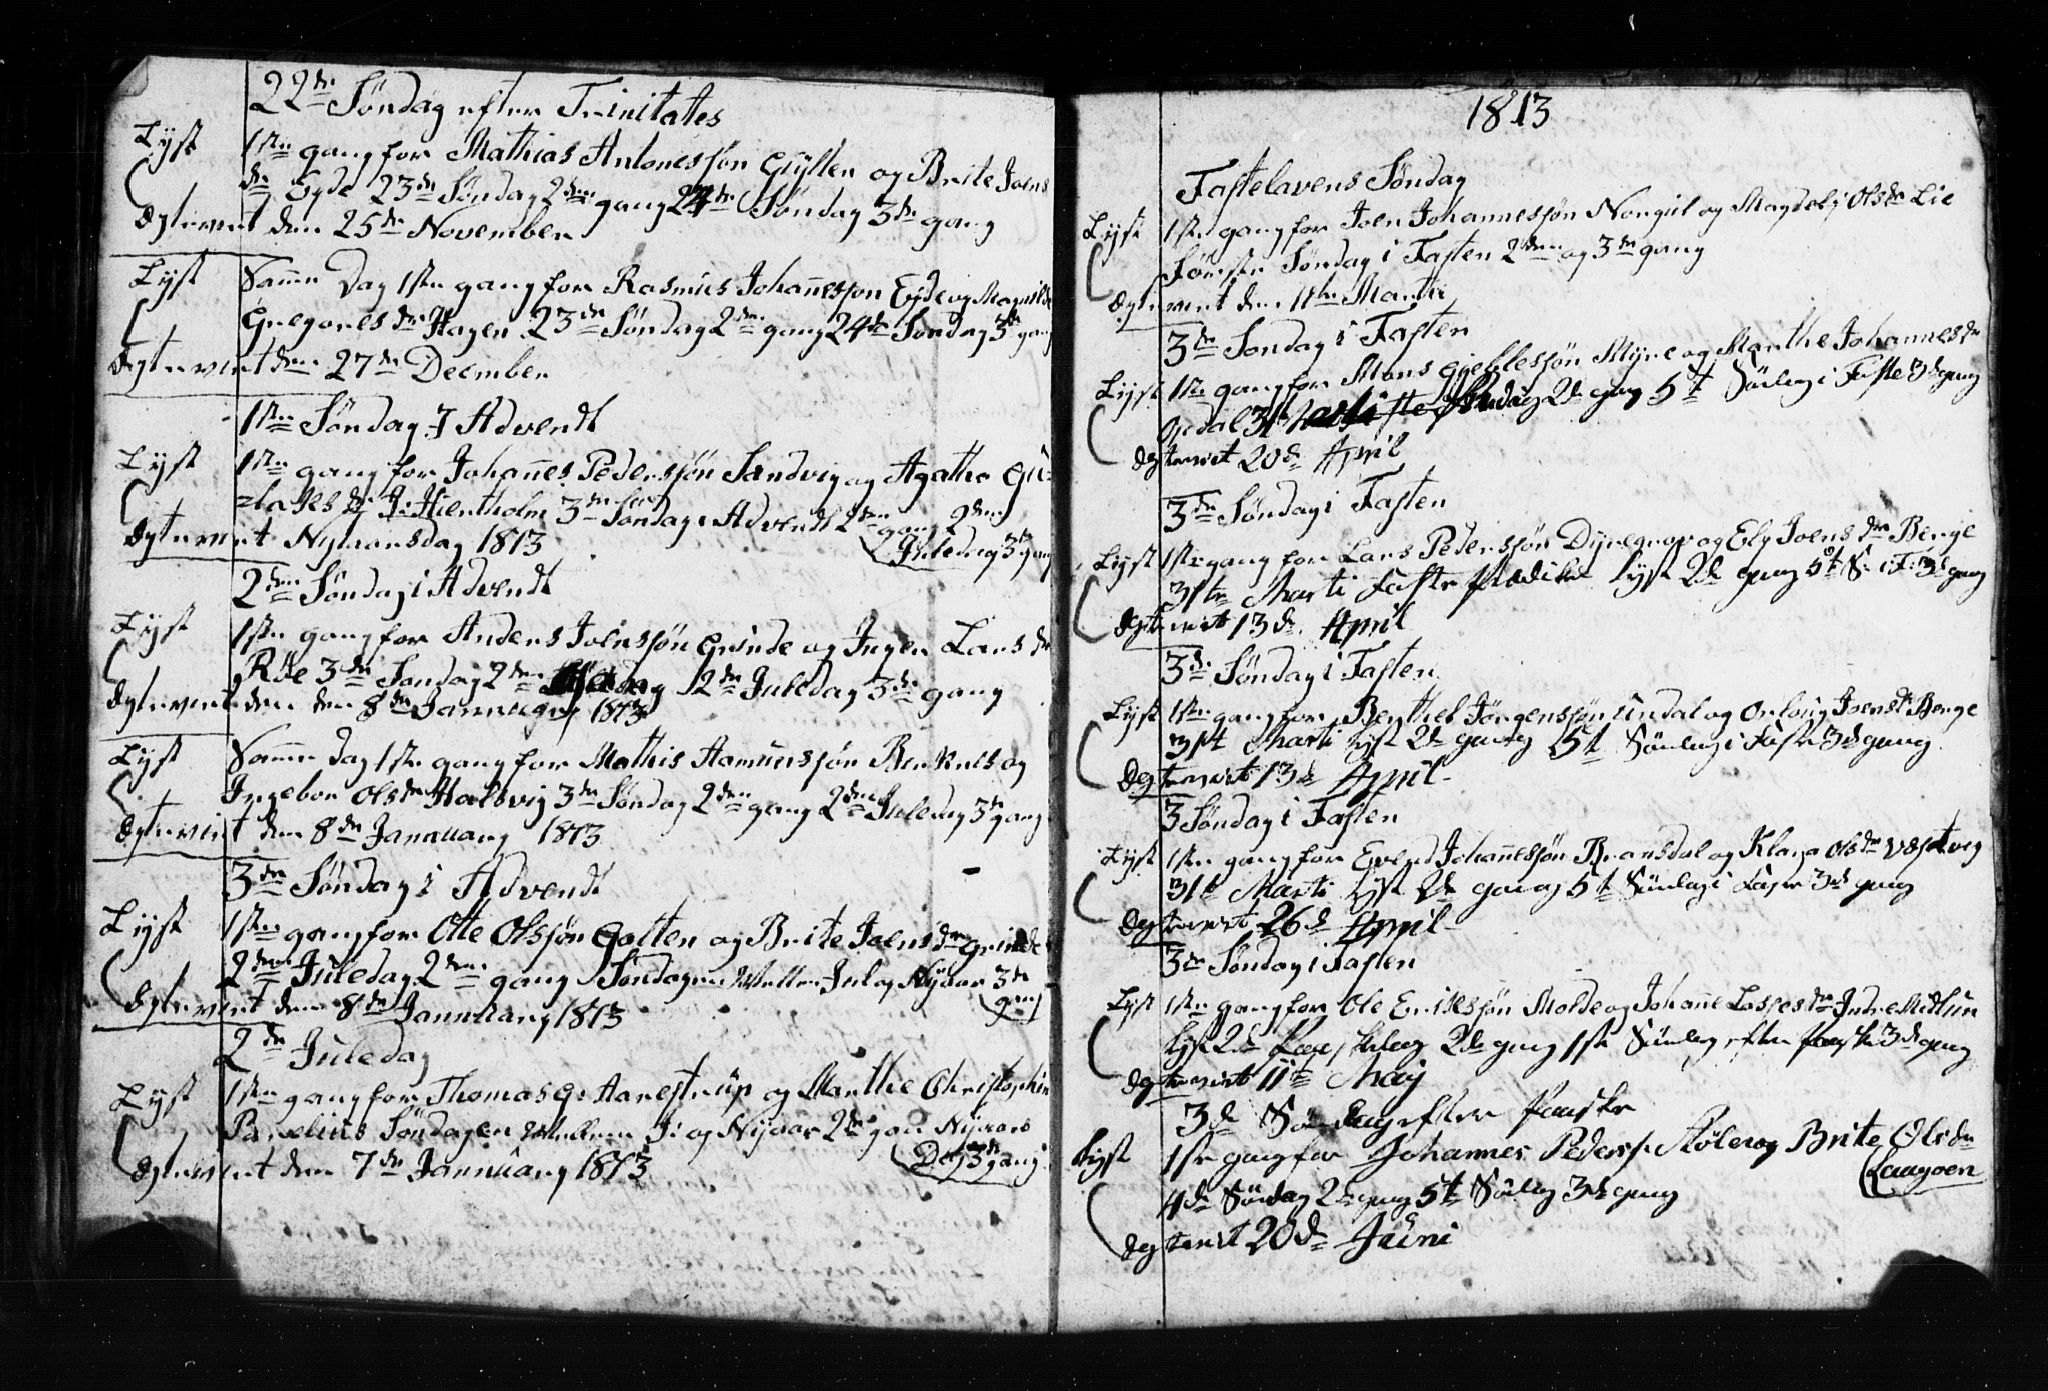 22de Søndag efter Trinitates
Lyst 1ste gang for Mathias Antonessøn Gylten og Brite Joens
dr Eyde 23de Søndag 2den gang 24de Søndag 3de gang
Egtevict den 25de November
Lyst Samme Dag 1ste gang for Rasmus Johanessøn Eyde og Magnilde
Gregories dr Hagen 23de Søndag 2den gang 24de Søndag 3de gang
Egtevict den 27de December
1ste Søndag I Advendt
Lyst 1ste gang for Johanes Pederssøn Sandvig og Agatha Gu-
=laks dr Hientholm 3de Søndag i Advendt 2den gang 2den
Egtevict Nytaarsdag 1813 Juledag 3de gang
2den Søndag i Advendt
Lyst 1ste gang for Anders Joenssøn Grinde og Inger Lars dr
Røe 3de Søndag 2den 2den Juledag 3de gang
Egtevict den den 8de Januarij 1813
Lyst Samme dag 1ste gang for Mathis Hamerssøn Berknes og
Ingebor Ols dr Halsvig 3de Søndag 2den gang 2den Juledag 3de gang
Egtevict den 8de Januarij 1813
3de Søndag i Advendt
Lyst 1ste gang for Otte Olssøn Gotten og Brite Joens dr Grinde
2den Juledag 2den gang Søndagen Mellem Jul og Nyaar 3de
gang
Egtevict den 8de Januarij 1813
2den Juledag
Lyst 1ste gang for Thomas G: Aarestrup og Marthe Christophin
Pavelius Søndagen Mellem J: og Nyaar 2de gan Nyaars
Dag 3de gang
Egtevict den 7de Januarij 1813
1813
Fastelavens Søndag
Lyst 1ste gang for Joen Johannessøn Nongul og Magdeli Ols dr Lie
Første Søndag i Fasten 2den og 3de gang
Egtevict den 11te Marti
3de Søndag i Fasten
Lyst 1ste gang for Mons Gieblessøn Myre og Marthe Johannes dr
Opdal 31te 2de gang 5te Søndag i Faste 3de gang
Egtevict 20de April
3de Søndag i Fasten
Lyst 1ste gang for Lars Pederssøn Dyregrov og Ely Joens dr Berge
31te Marti Faste Prædiken lyst 2de gang 5te S. i F. 3de gang
Egtevict 13de April
3de Søndag i Fasten
Lyst 1ste gang for Berthel Jørgenssøn Undal og Orloug Joens dr Berge
31te Marti lyst 2de gang 5te Søndag i Faste 3de gang
Egtevict 13de April
3 Søndag i Fasten
Lyst 1ste gang for Evend Johanessøn Bransdal og Klara Ols dr Væstvig
31te Marti lyst 2de gang 5te Søndag i Faste 3de gang
Egtevict 26de April
3de Søndag i Fasten
Lyst 1ste gang for Ole Erikssøn Molde og Johane Lasses dr Indre Midtun
lyst 2de Paaskedag 2de gang 1ste Søndag efter Paaske 3de gang
Egtevict 11te Maij
3de Søndag efter Paaske
Lyst 1ste gang for Johannes Peders. Støle og Brite Ols dr
Laagoen
4de Søndag 2de gang 5te Søndag 3de gang
Egtevict 20de Juni